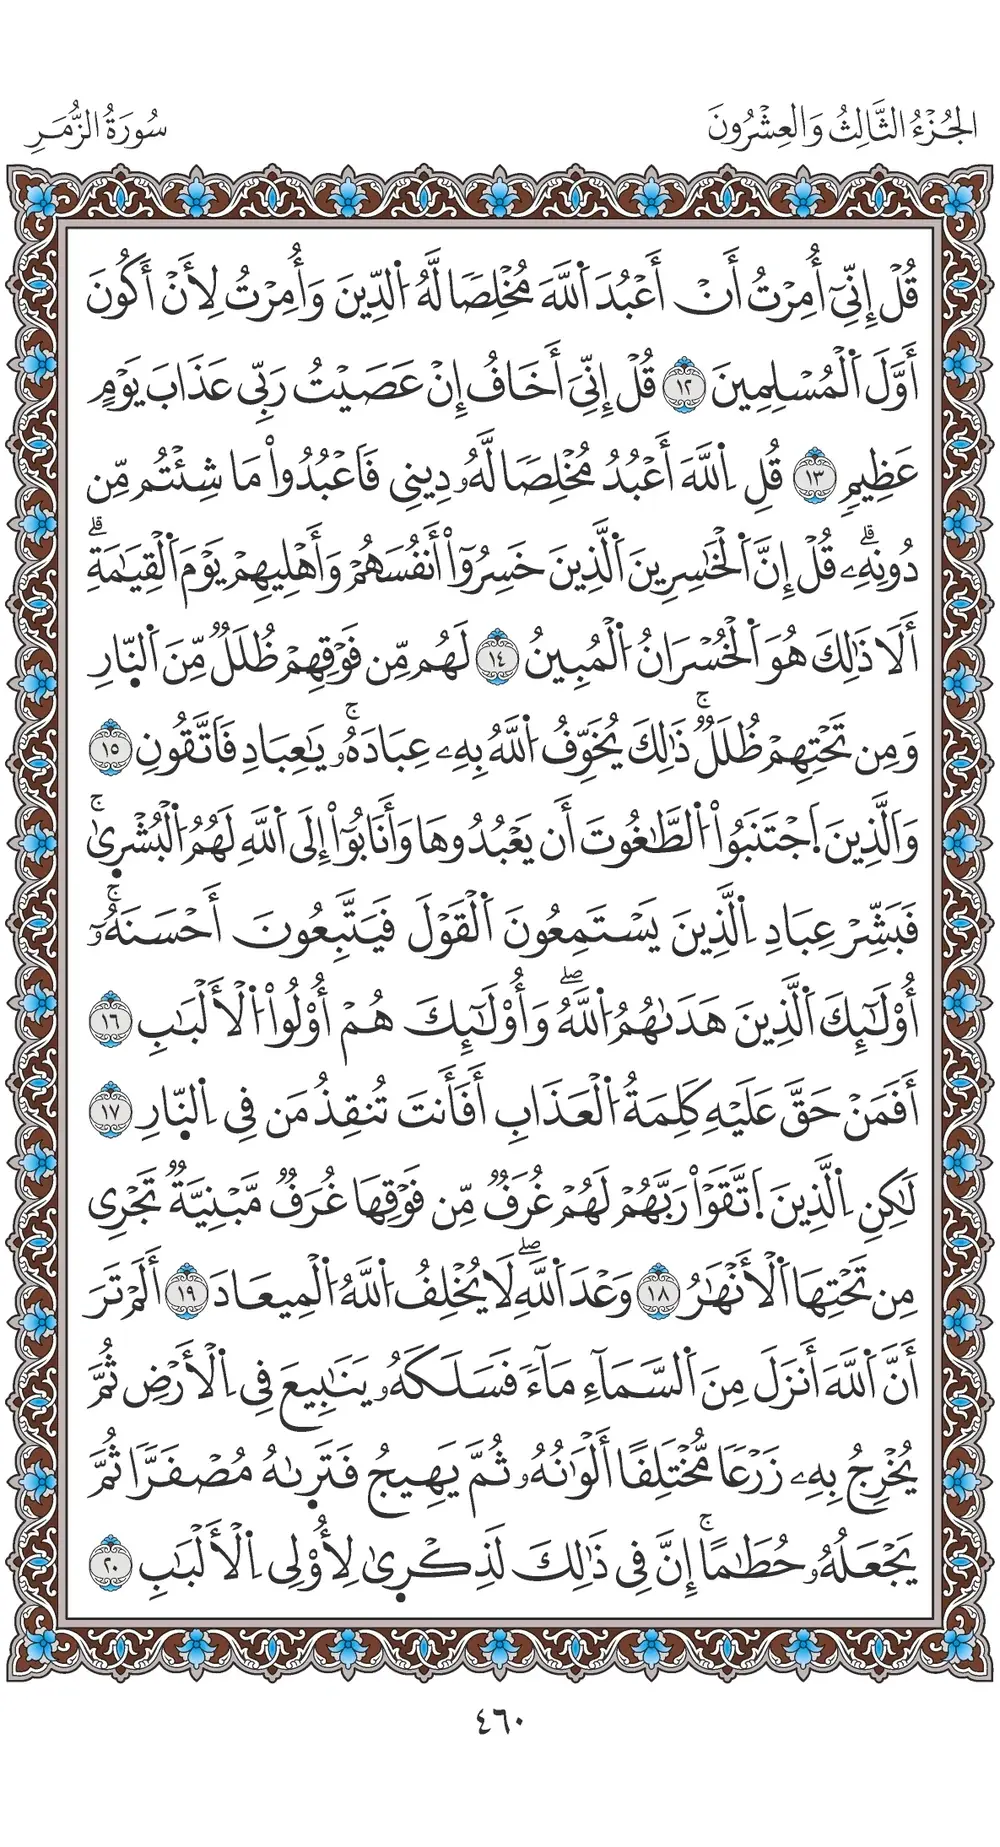 الجُزْءُ الثَّالِثُ وَالعِشْرُونَ
سُورَةُ الزُّمَرِ
قُلْ إِنِّيٓ أُمِرْتُ أَنْ أَعْبُدَ اَللَّهَ مُخْلِصًا لَّهُ اُلدِّينَ وَأُمِرْتُ لِأَنْ أَكُونَ
أَوَّلَ اَلْمُسْلِمِينَ ١٢ قُلْ إِنِّيَ أَخَافُ إِنْ عَصَيْتُ رَبِّي عَذَابَ يَوْمٍ
عَظِيمٍ ١٣ قُلِ اِللَّهَ أَعْبُدُ مُخْلِصًا لَّهُۥ دِينِي فَاَعْبُدُواْ مَا شِئْتُم مِّن
دُونِهِۦۗ قُلْ إِنَّ اَلْخَٰسِرِينَ اَلَّذِينَ خَسِرُوٓاْ أَنفُسَهُمْ وَأَهْلِيهِمْ يَوْمَ اَلْقِيَٰمَةِۗ
أَلَا ذَٰلِكَ هُوَ اَلْخُسْرَانُ اُلْمُبِينُ ١٤ لَهُم مِّن فَوْقِهِمْ ظُلَلٌ مِّنَ اَلنّ۪ارِ
وَمِن تَحْتِهِمْ ظُلَلٌۚ ذَٰلِكَ يُخَوِّفُ اُللَّهُ بِهِۦ عِبَادَهُۥۚ يَٰعِبَادِ فَاَتَّقُونِ ١٥
وَالَّذِينَ اَجْتَنَبُواْ اُلطَّٰغُوتَ أَن يَعْبُدُوهَا وَأَنَابُوٓاْ إِلَى اَللَّهِ لَهُمُ اُلْبُشْر۪ىٰۚ
فَبَشِّرْ عِبَادِ اِلَّذِينَ يَسْتَمِعُونَ اَلْقَوْلَ فَيَتَّبِعُونَ أَحْسَنَهُۥٓۚ
أُوْلَٰٓئِكَ اَلَّذِينَ هَدَىٰهُمُ اُللَّهُۖ وَأُوْلَٰٓئِكَ هُمْ أُوْلُواْ اُلْأَلْبَٰبِ ١٦
أَفَمَنْ حَقَّ عَلَيْهِ كَلِمَةُ اُلْعَذَابِ أَفَأَنتَ تُنقِذُ مَن فِي اِلنّ۪ارِ ١٧
لَٰكِنِ اِلَّذِينَ اَتَّقَوْاْ رَبَّهُمْ لَهُمْ غُرَفٌ مِّن فَوْقِهَا غُرَفٌ مَّبْنِيَّةٌ تَجْرِي
مِن تَحْتِهَا اَلْأَنْهَٰرُ ١٨ وَعْدَ اَللَّهِۖ لَا يُخْلِفُ اُللَّهُ اُلْمِيعَادَ ١٩ أَلَمْ تَرَ
أَنَّ اَللَّهَ أَنزَلَ مِنَ اَلسَّمَآءِ مَآءً فَسَلَكَهُۥ يَنَٰبِيعَ فِي اِلْأَرْضِ ثُمَّ
يُخْرِجُ بِهِۦ زَرْعًا مُّخْتَلِفًا أَلْوَٰنُهُۥ ثُمَّ يَهِيجُ فَتَر۪ىٰهُ مُصْفَرًّا ثُمَّ
يَجْعَلُهُۥ حُطَٰمًاۚ إِنَّ فِي ذَٰلِكَ لَذِكْر۪ىٰ لِأُوْلِي اِلْأَلْبَٰبِ ٢٠
٤٦٠